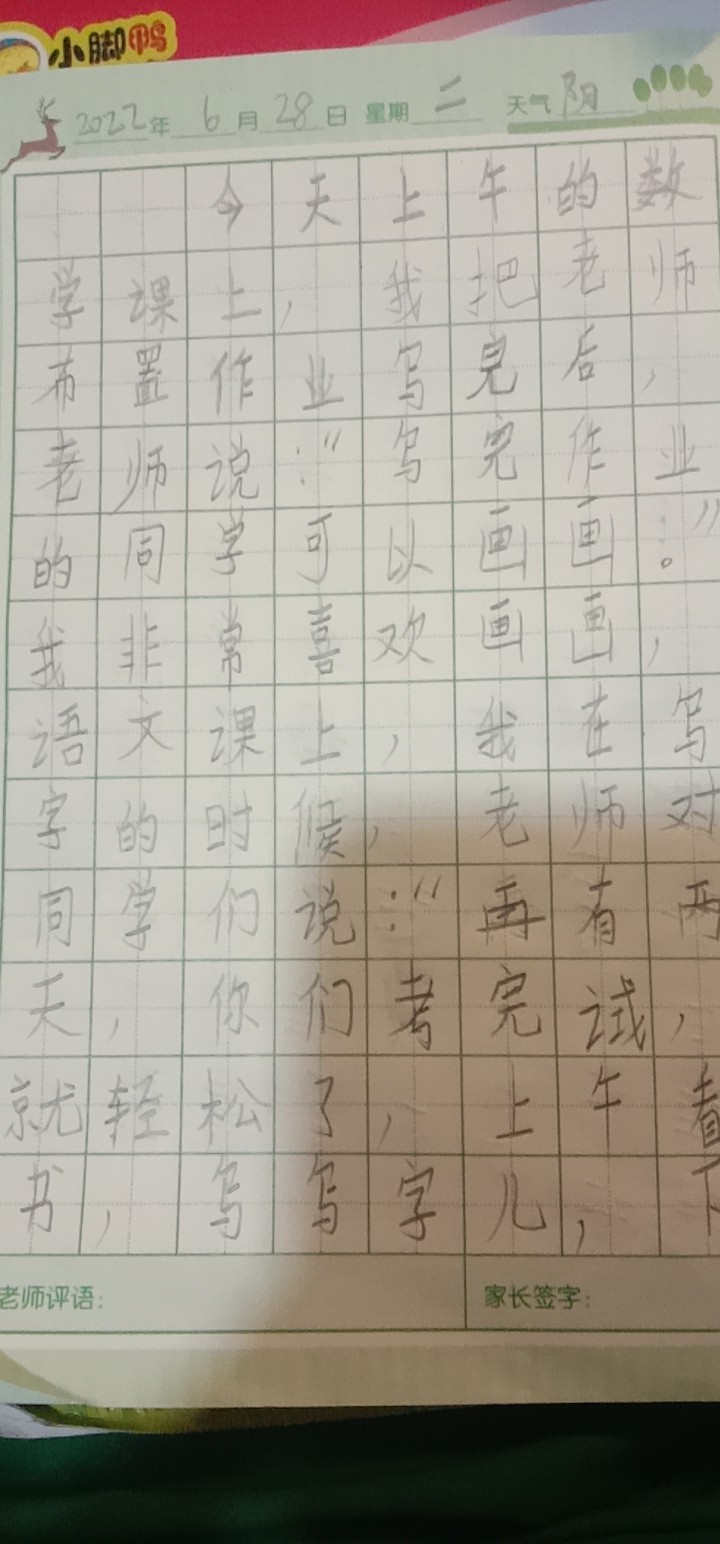 小脚鸭
2022年 6月 28日 星期二 天气 阴
今天上午的数
学课上，我把老师
布置作业写完后，
老师说：“写完作业
的同学可以画画。”
我非常喜欢画画，
语文课上，我在写
字的时候，老师对
同学们说：“再有两
天，你们考完试，
就轻松了，上午看
书，写写字儿，下
老师评语： 家长签字：